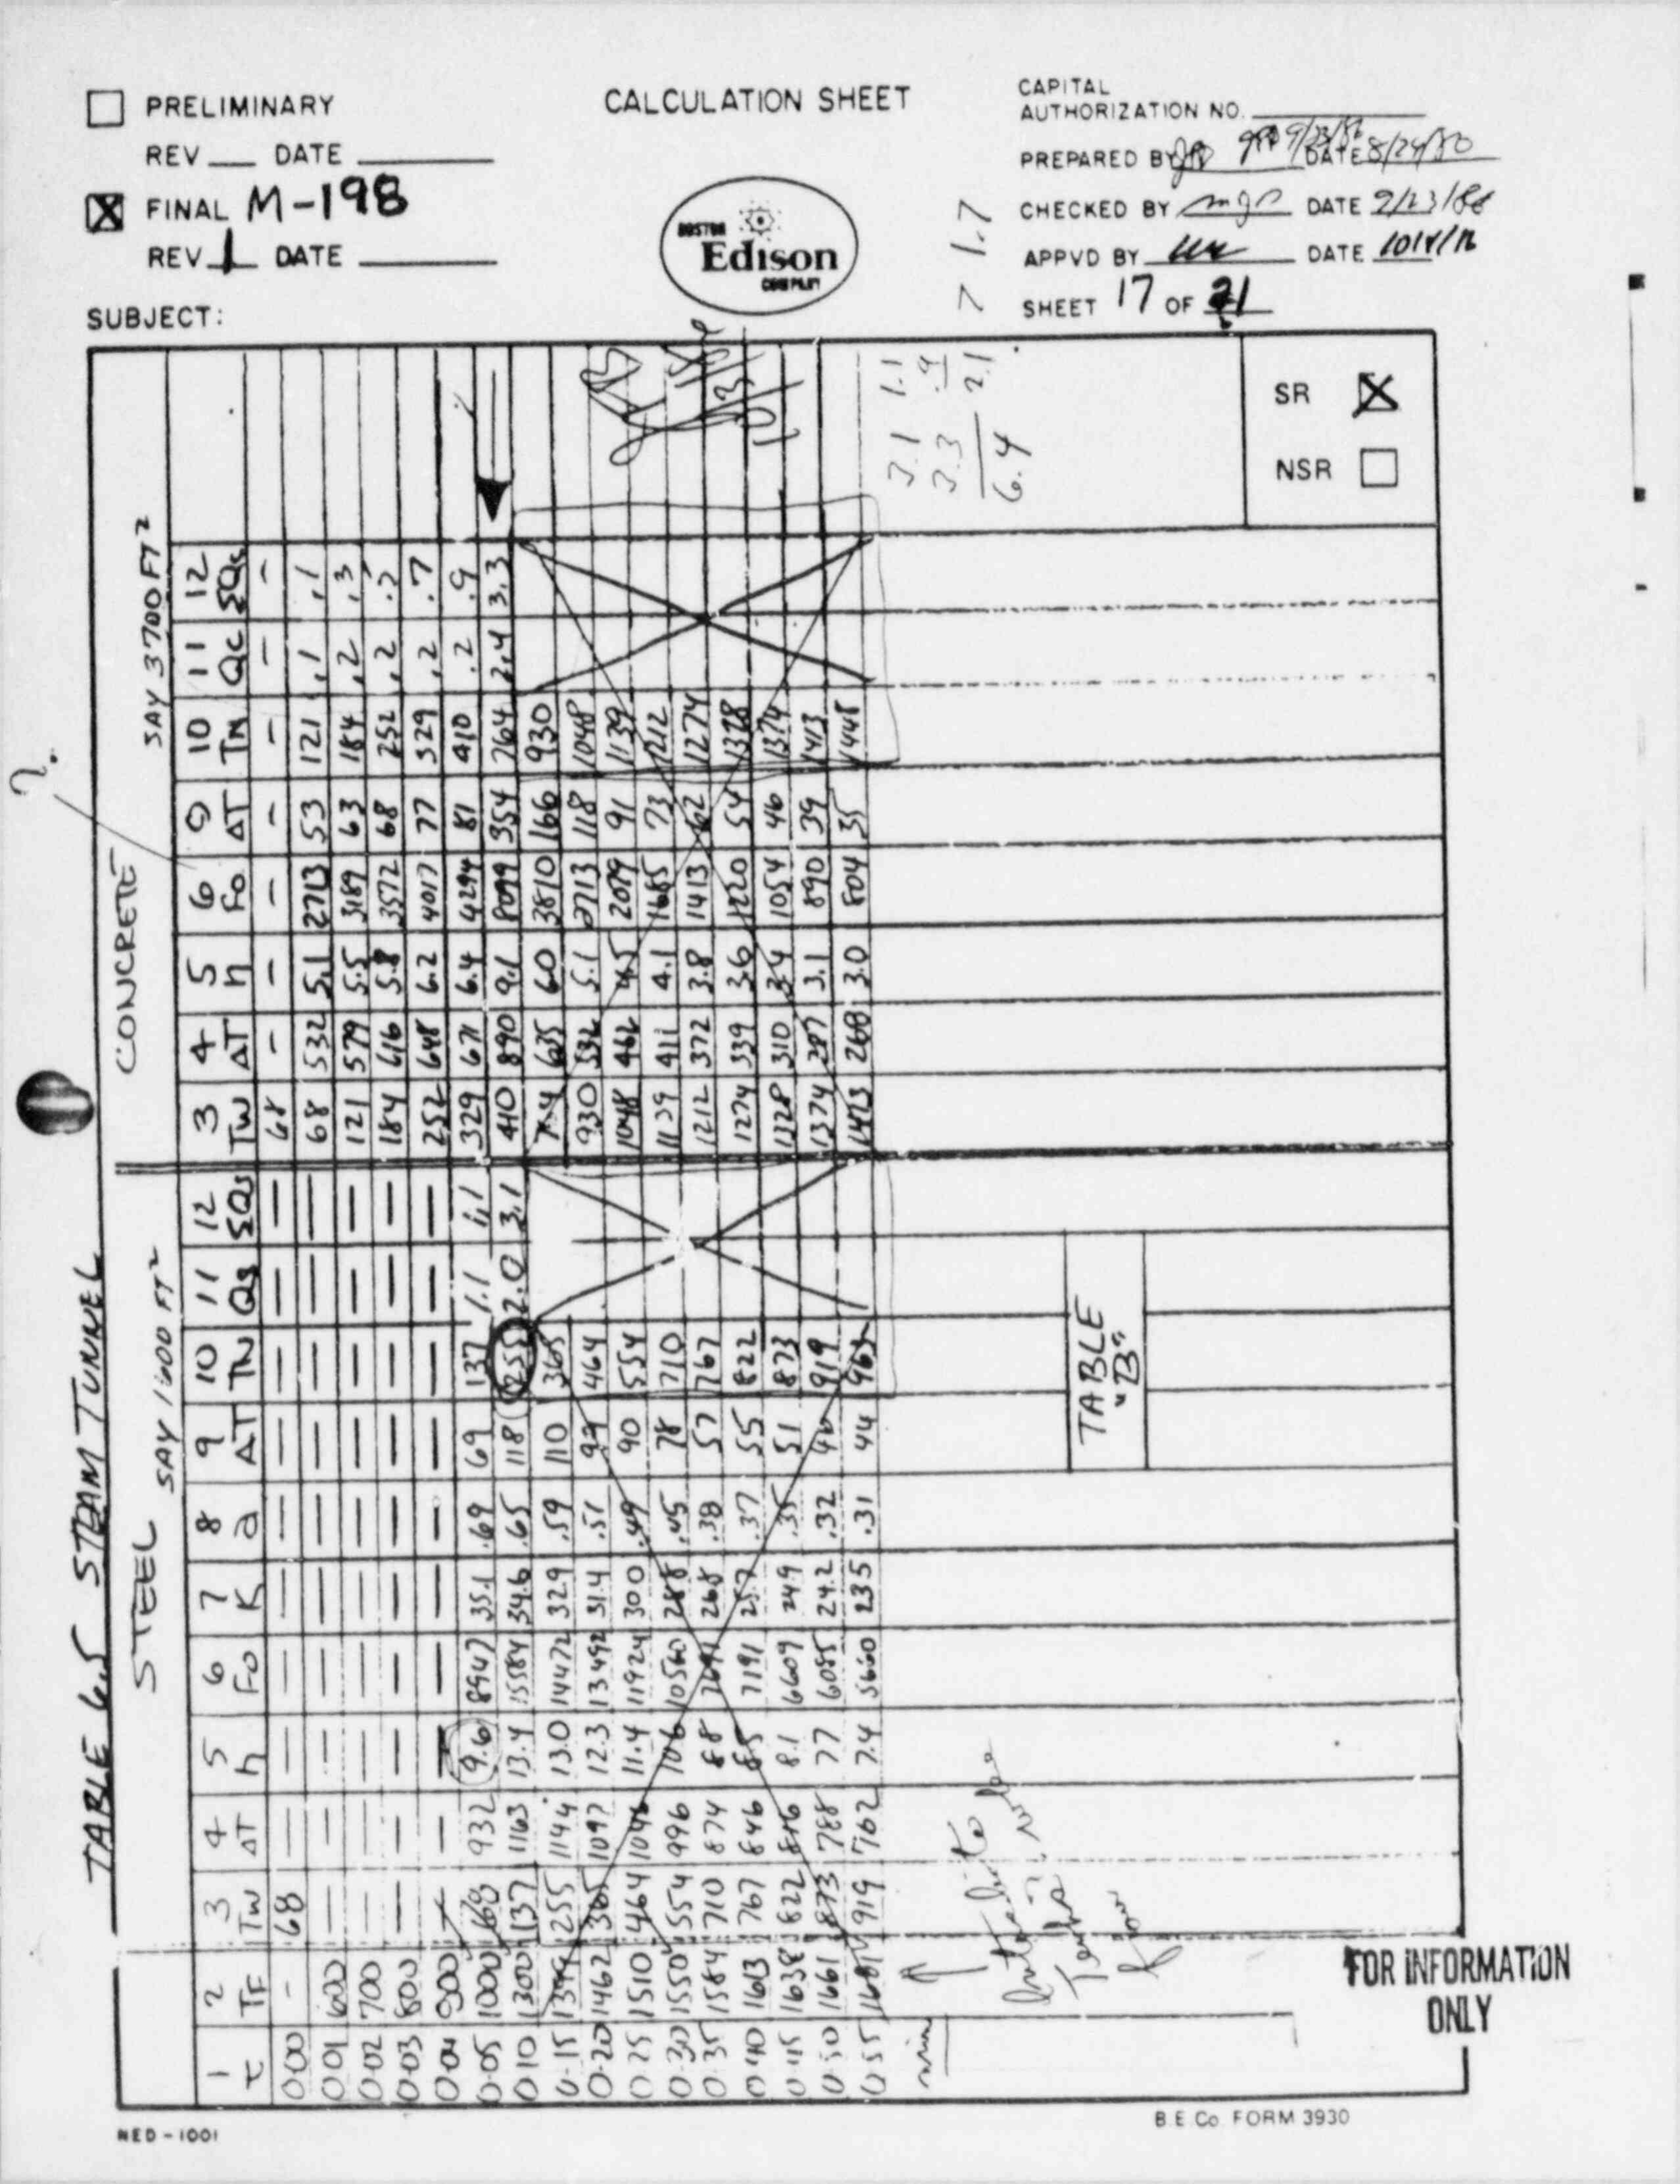 PRELIMINARY
REV DATE
FINAL M-198
REV 1 DATE
SUBJECT:
CALCULATION SHEET
BOSTON
Edison
COMPANY
CAPITAL
AUTHORIZATION NO.
PREPARED BY DATE 8/29/80
CHECKED BY mgn DATE 9/23/86
APPVD BY DATE
SHEET 17 OF 21
7 1.7
SR X
NSR
3.1 1.1
3.3 .9
6.4 2.1
TABLE 6.5 STEAM TUNNEL
STEEL SAY 1600 FT² CONCRETE SAY 3700 FT²
?
1 2 3 4 5 6 7 8 9 10 11 12 3 4 5 6 9 10 11 12
τ TF TW ΔT h Fo K a ΔT TN Qs ΣQs TW ΔT h Fo ΔT TN Qc ΣQc
0.00 - 68 — — — — — — — — — 68 - - - - - - -
0.01 600 — — — — — — — — — — 68 532 5.1 2713 53 121 .1 .1
0.02 700 — — — — — — — — — — 121 579 5.5 3189 63 184 .2 .3
0.03 800 — — — — — — — — — — 184 616 5.8 3572 68 252 .2 .5
0.04 900 — — — — — — — — — — 252 648 6.2 4017 77 329 .2 .7
0.05 1000 68 932 9.6 8947 35.1 .69 69 137 1.1 1.1 329 671 6.4 4294 81 410 .2 .9
0.10 1300 137 1163 13.4 15584 34.6 .65 118 255 2.0 3.1 410 890 9.1 8099 354 764 2.4 3.3
0.15 1399 255 1144 13.0 14472 32.9 .59 110 365 764 635 6.0 3810 166 930
0.20 1462 365 1097 12.3 13492 31.4 .51 99 464 930 532 5.1 2713 118 1048
0.25 1510 464 1046 11.4 11924 30.0 .49 90 554 1048 462 4.5 2079 91 1139
0.30 1550 554 996 10.6 10560 28.8 .45 78 710 1139 411 4.1 1685 73 1212
0.35 1584 710 874 8.8 7691 26.8 .38 57 767 1212 372 3.8 1413 62 1274
0.40 1613 767 846 8.5 7191 25.7 .37 55 822 1274 339 3.6 1220 54 1328
0.45 1638 822 816 8.1 6609 24.9 .35 51 873 1328 310 3.4 1054 46 1374
0.50 1661 873 788 7.7 6085 24.2 .32 46 919 1374 287 3.1 890 39 1413
0.55 1681 919 762 7.4 5660 23.5 .31 44 963 1413 268 3.0 804 35 1448
min
TABLE
"B"
FOR INFORMATION
ONLY
NED-1001
B.E. Co. FORM 3930